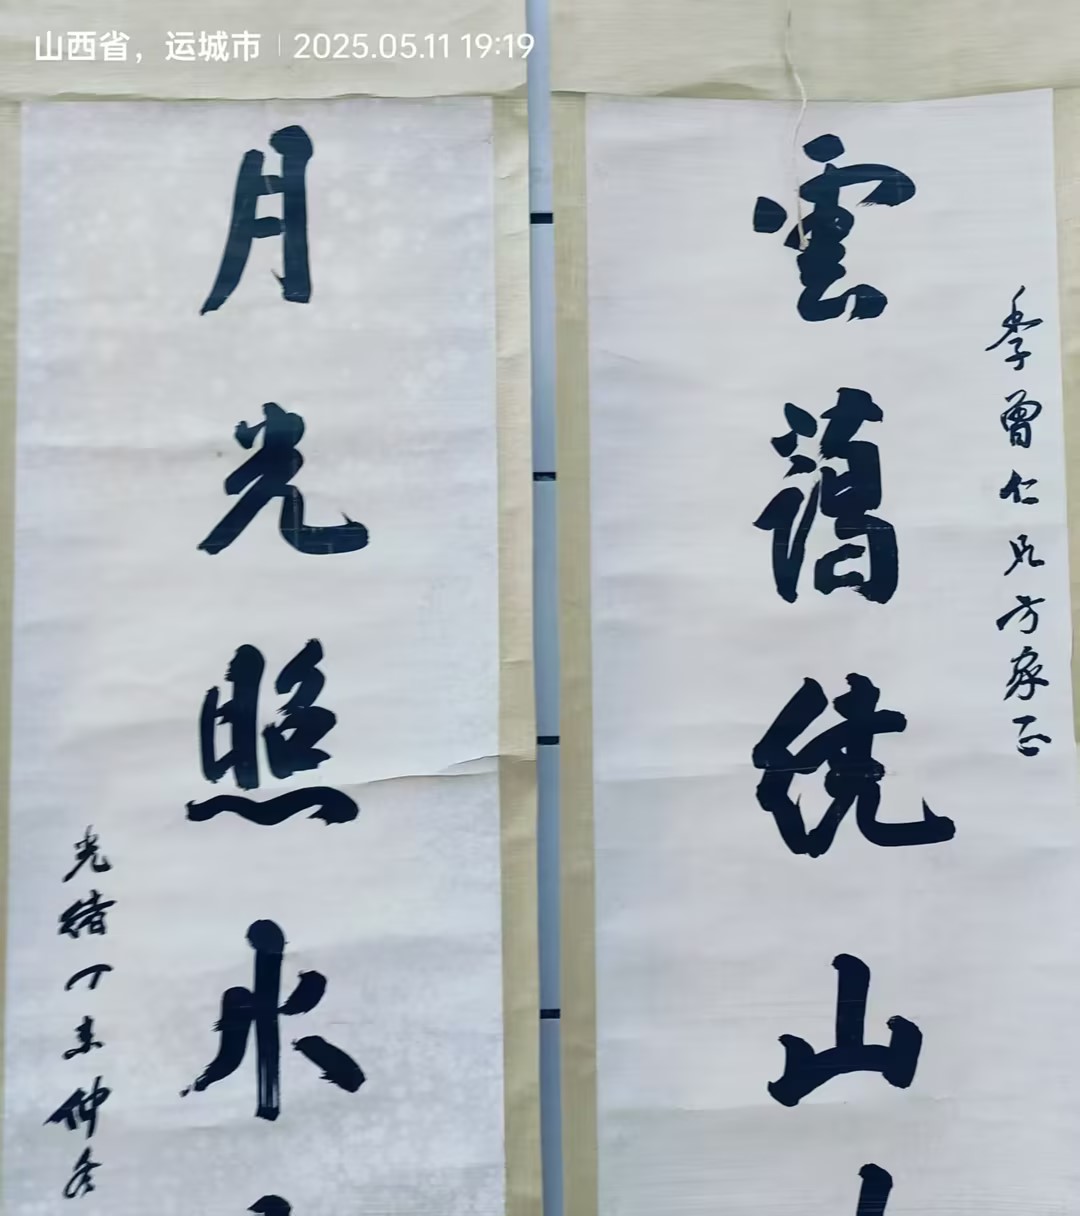 山西省，运城市 | 2025.05.11 19:19
季曾仁兄方家正
雲藹繞山
月光照水
光緒丁未仲冬